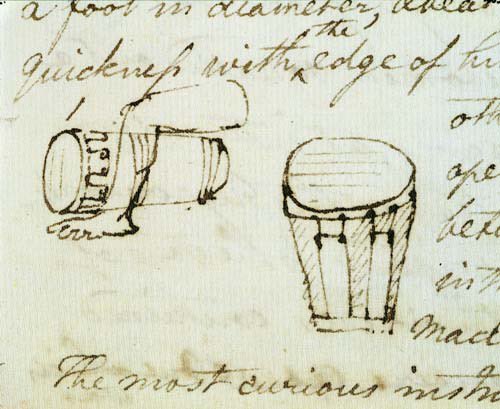 a foot in diameter,
quickness with ^the edge of h
oth
ope
in th
mad
The most curious inst